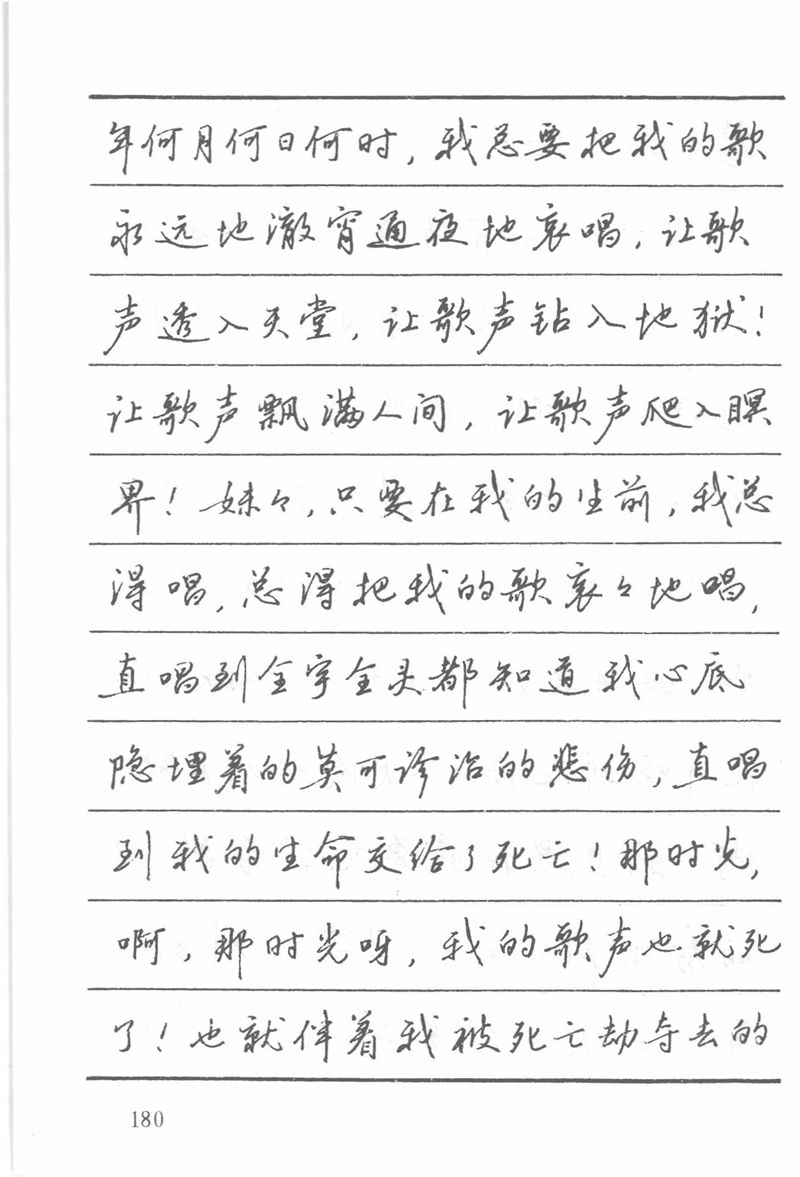 年何月何日何时，我总要把我的歌
永远地澈宵通夜地哀唱，让歌
声透入天堂，让歌声钻入地狱！
让歌声飘满人间，让歌声爬入瞑
界！妹々，只要在我的生前，我总
得唱，总得把我的歌哀々地唱，
直唱到全宇全灵都知道我心底
隐埋着的莫可诊治的悲伤，直唱
到我的生命交给了死亡！那时光，
啊，那时光呀，我的歌声也就死
了！也就伴着我被死亡劫夺去的
180